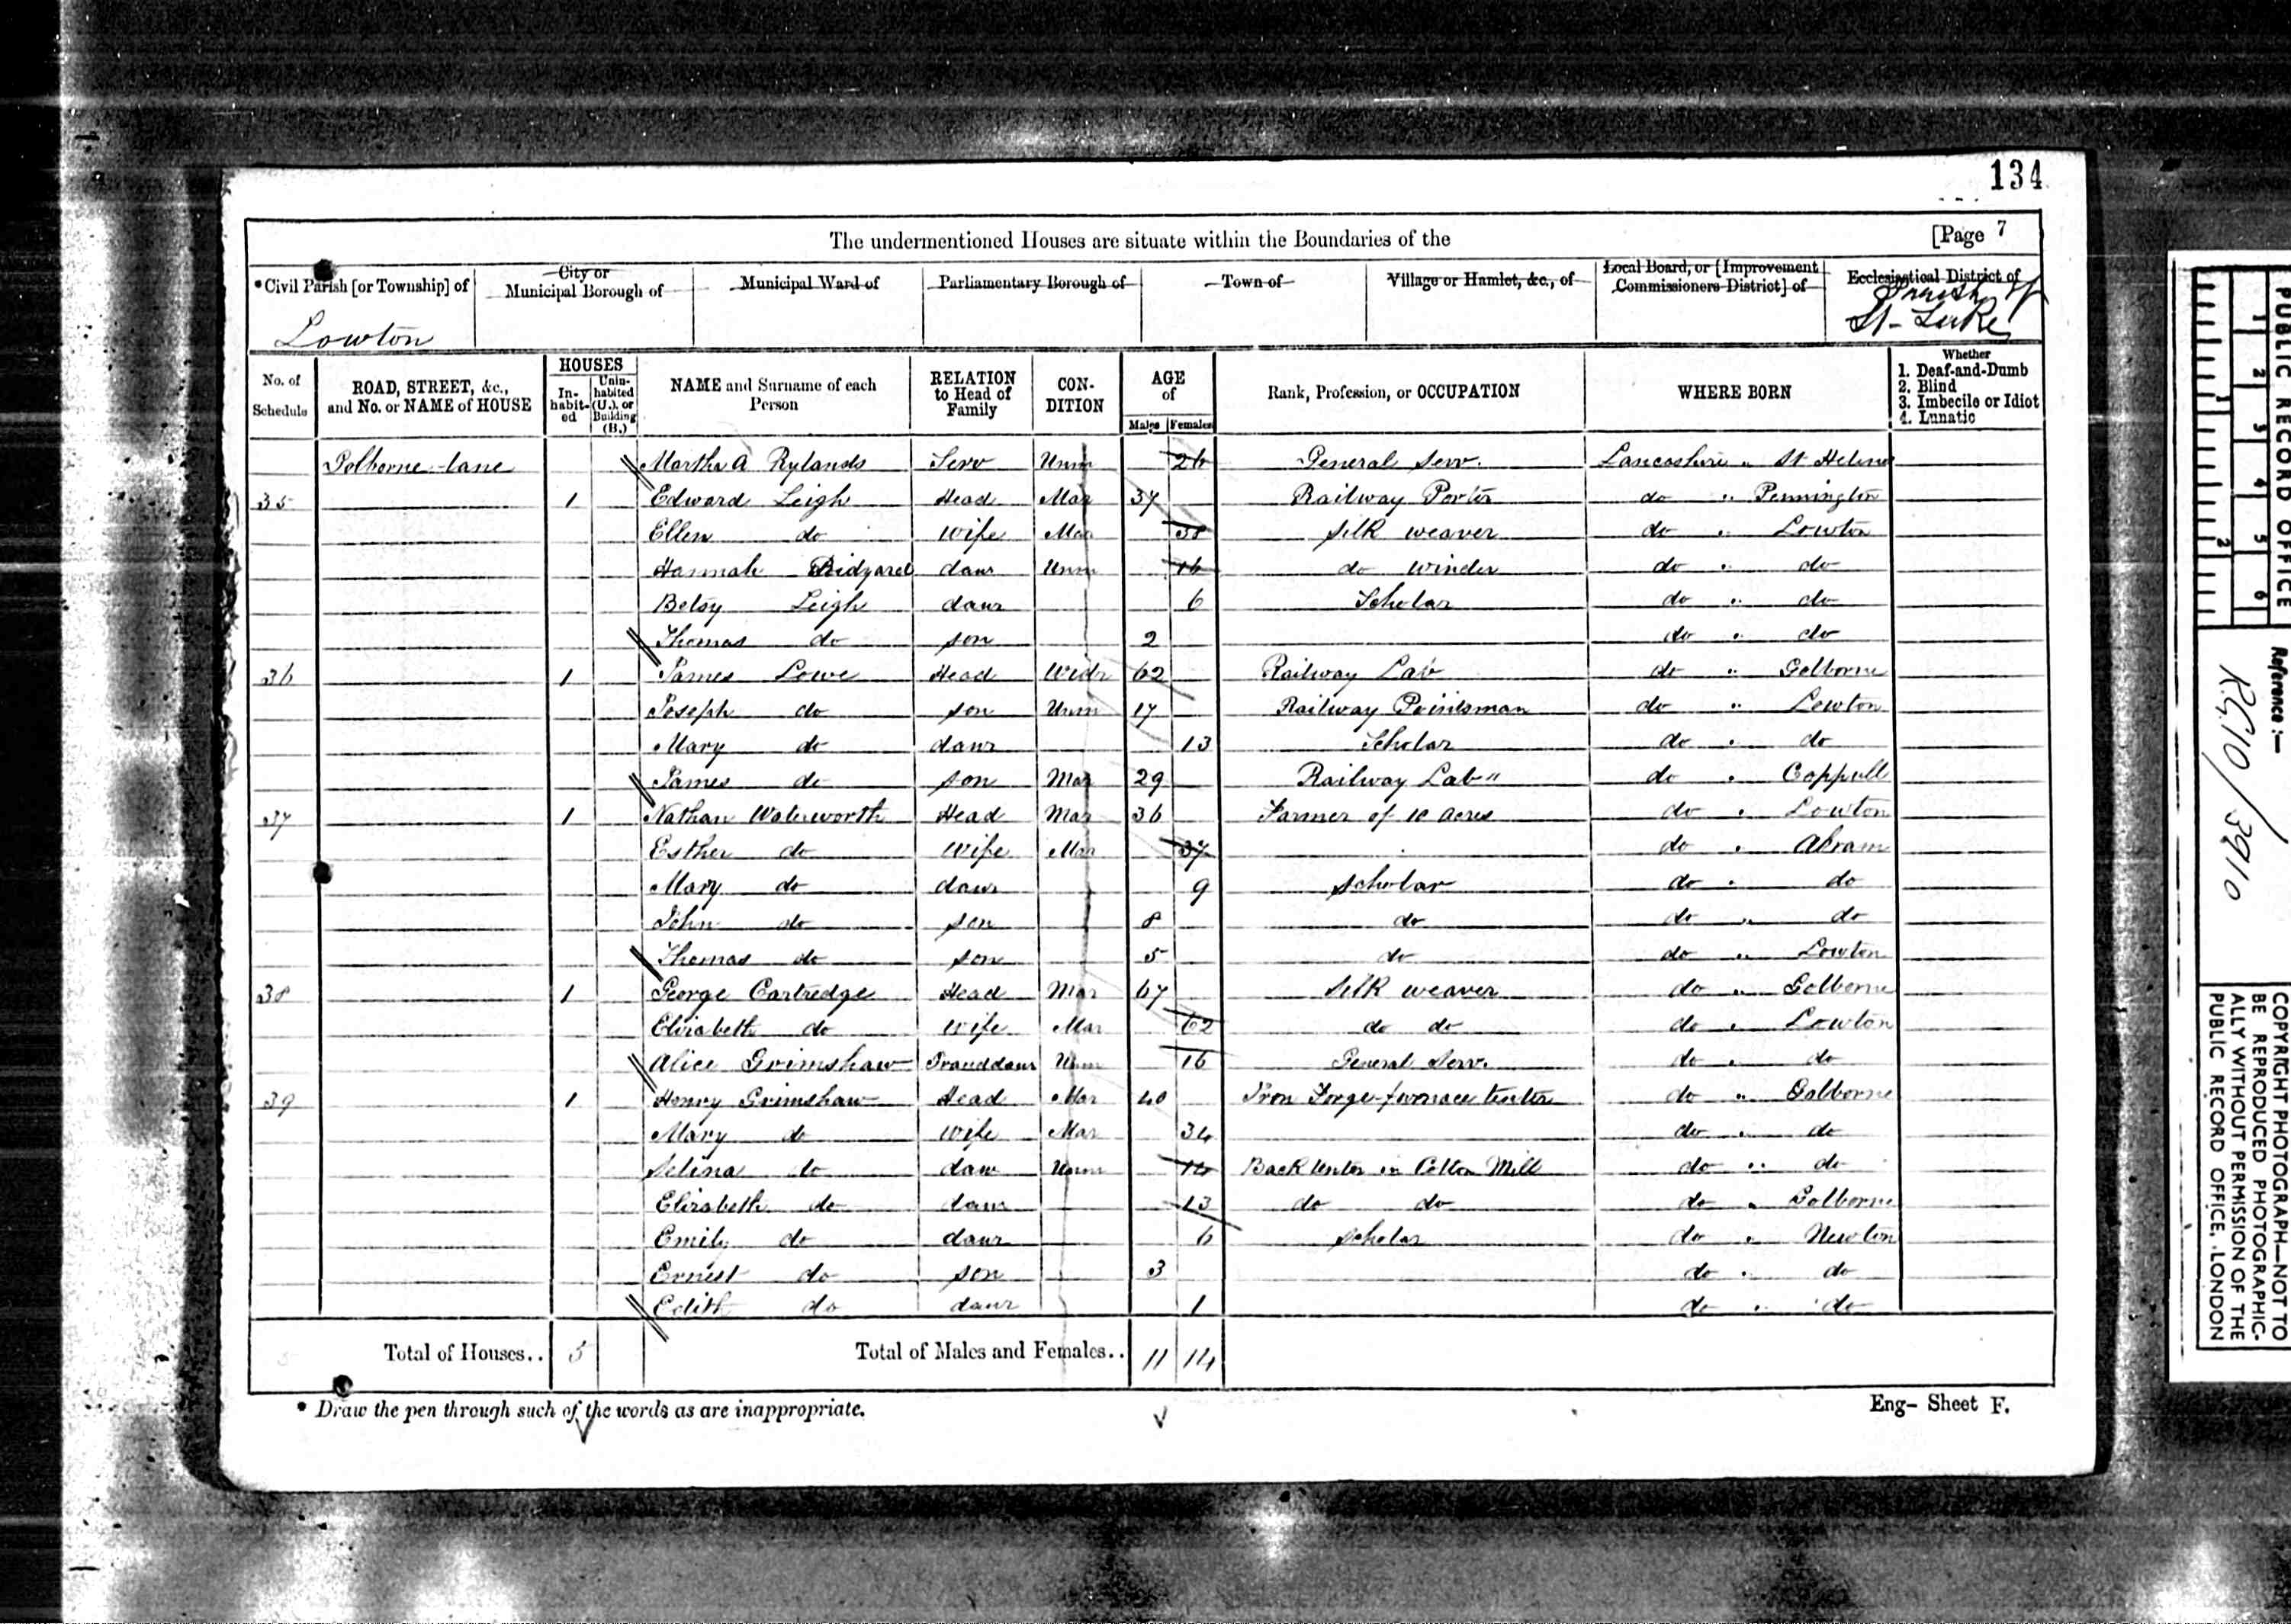 134
The undermentioned Houses are situate within the Boundaries of the [Page 7
*Civil Parish [or Township] of City or Municipal Borough of Municipal Ward of Parliamentary Borough of Town of Village or Hamlet, &c., of Local Board, or [Improvement Commissioners District] of Ecclesiastical District of
Lowton Parish of St-Luke
No. of Schedule ROAD, STREET, &c., and No. or NAME of HOUSE HOUSES Inhabited Uninhabited (U.), or Building (B.) NAME and Surname of each Person RELATION to Head of Family CONDITION AGE of Males Females Rank, Profession, or OCCUPATION WHERE BORN Whether 1. Deaf-and-Dumb 2. Blind 3. Imbecile or Idiot 4. Lunatic
Golborne lane Martha A Rylands Serv Unm 26 General Serv. Lancashire " St Helens
35 1 Edward Leigh Head Mar 37 Railway Porter do " Pennington
Ellen do Wife Mar 38 Silk weaver do " Lowton
Hannah Ridyard daur Unm 16 do winder do " do
Betsy Leigh daur 6 Scholar do " do
Thomas do son 2 do " do
36 1 James Lowe Head Widr 62 Railway Lab do " Golborne
Joseph do son Unm 17 Railway Pointsman do " Lowton
Mary do daur 13 Scholar do " do
James do son Mar 29 Railway Lab" do " Coppull
37 1 Nathan Waterworth Head Mar 36 Farmer of 10 acres do " Lowton
Esther do Wife Mar 37 do " Abram
Mary do daur 9 Scholar do " do
John do son 8 do do " do
Thomas do son 5 do do " Lowton
38 1 George Cartredge Head Mar 67 Silk weaver do " Golborne
Elizabeth do Wife Mar 62 do do do " Lowton
Alice Grimshaw Granddaur Unm 16 General Serv. do " do
39 1 Henry Grimshaw Head Mar 40 Iron Forge furnace tenter do " Golborne
Mary do Wife Mar 34 do " do
Selina do daur Unm 14 Back tenter in Cotton Mill do " do
Elizabeth do daur 13 do do do " Golborne
Emily do daur 6 Scholar do " Newton
Ernest do son 3 do " do
Edith do daur 1 do " do
Total of Houses.. 5 Total of Males and Females.. 11 14
* Draw the pen through such of the words as are inappropriate.
Eng- Sheet F.
PUBLIC RECORD OFFICE
1 2 3 4 5 6
1 2
Reference :-
RG10/3910
COPYRIGHT PHOTOGRAPH—NOT TO
BE REPRODUCED PHOTOGRAPHIC-
ALLY WITHOUT PERMISSION OF THE
PUBLIC RECORD OFFICE, LONDON